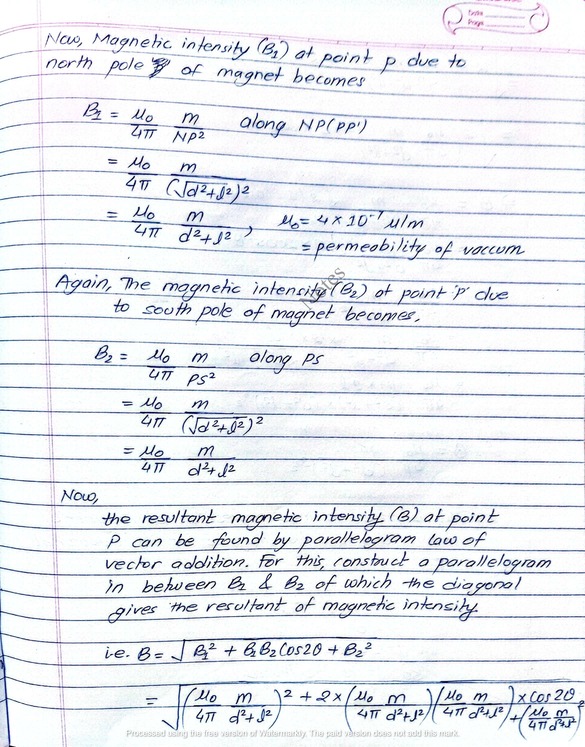 Date
Page
Now, Magnetic intensity (B₁) at point p due to
north pole of magnet becomes
B₁ = μ₀/4π m/NP² along NP(PP')
= μ₀/4π m/(√d²+l²)²
= μ₀/4π m/d²+l² , μ₀ = 4×10⁻⁷ μ/m
= permeability of vaccum
Again, The magnetic intensity (B₂) at point 'P' due
to south pole of magnet becomes.
Notes
B₂ = μ₀/4π m/PS² along PS
= μ₀/4π m/(√d²+l²)²
= μ₀/4π m/d²+l²
Now,
the resultant magnetic intensity (B) at point
P can be found by parallelogram law of
vector addition. For this, construct a parallelogram
in between B₁ & B₂ of which the diagonal
gives the resultant of magnetic intensity
i.e. B = √B₁² + B₁B₂ Cos2θ + B₂²
= √(μ₀/4π m/d²+l²)² + 2×(μ₀/4π m/d²+l²)(μ₀/4π m/d²+l²)×cos2θ + (μ₀/4π m/d²+l²)²
Processed using the free version of Watermarkly. The paid version does not add this mark.